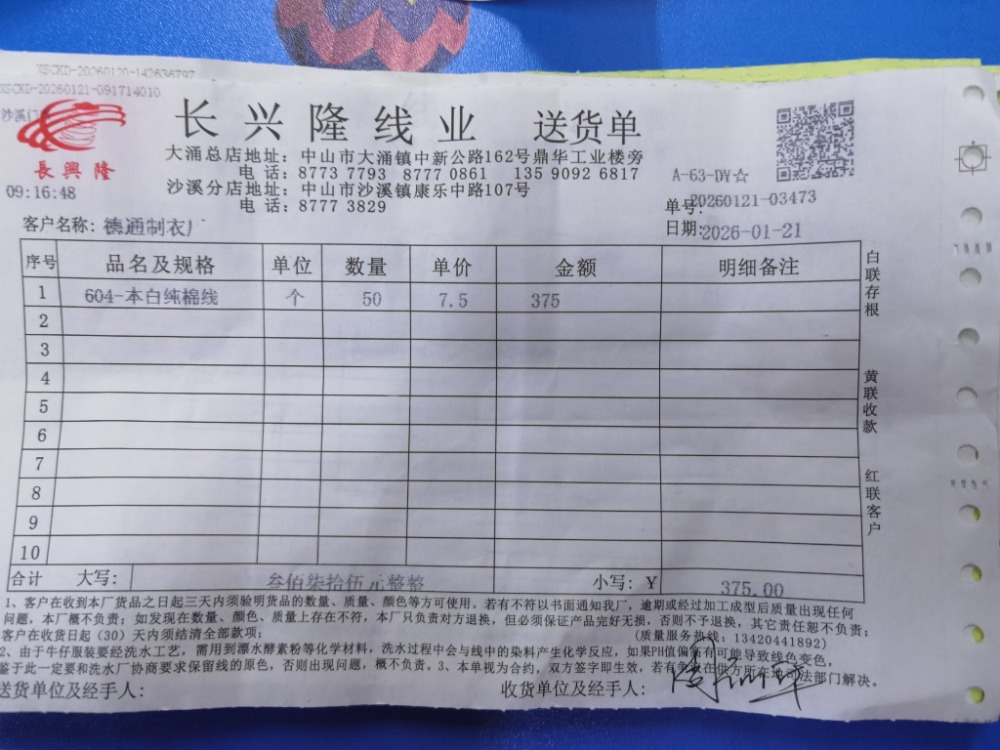 XSCKD-20260120-142636797
XSCKD-20260121-091714010
沙溪门
長興隆
09:16:48
长兴隆线业 送货单
大涌总店地址：中山市大涌镇中新公路162号鼎华工业楼旁
电 话：8773 7793 8777 0861 135 9092 6817
沙溪分店地址：中山市沙溪镇康乐中路107号
电 话：8777 3829
A-63-DY☆
单号：20260121-03473
客户名称：德通制衣厂
日期：2026-01-21
序号 品名及规格 单位 数量 单价 金额 明细备注
1 604-本白纯棉线 个 50 7.5 375
2
3
4
5
6
7
8
9
10
合计 大写： 叁佰柒拾伍元整整 小写：￥ 375.00
白联存根
黄联收款
红联客户
1、客户在收到本厂货品之日起三天内须验明货品的数量、质量、颜色等方可使用。若有不符以书面通知我厂，逾期或经过加工成型后质量出现任何
问题，本厂概不负责；如发现在数量、颜色、质量上存在不符，本厂只负责对方退换，但必须保证产品完好无损，否则不予退换，其它责任恕不负责；
客户在收货日起（30）天内须结清全部款项；
(质量服务热线：13420441892)
2、由于牛仔服装要经洗水工艺，需用到漂水酵素粉等化学材料，洗水过程中会与线中的染料产生化学反应，如果PH值偏高有可能导致线色变色，
鉴于此一定要和洗水厂协商要求保留线的原色，否则出现问题，概不负责。3、本单视为合约，双方签字即生效，若有争议在供方所在地司法部门解决。
送货单位及经手人：
收货单位及经手人：